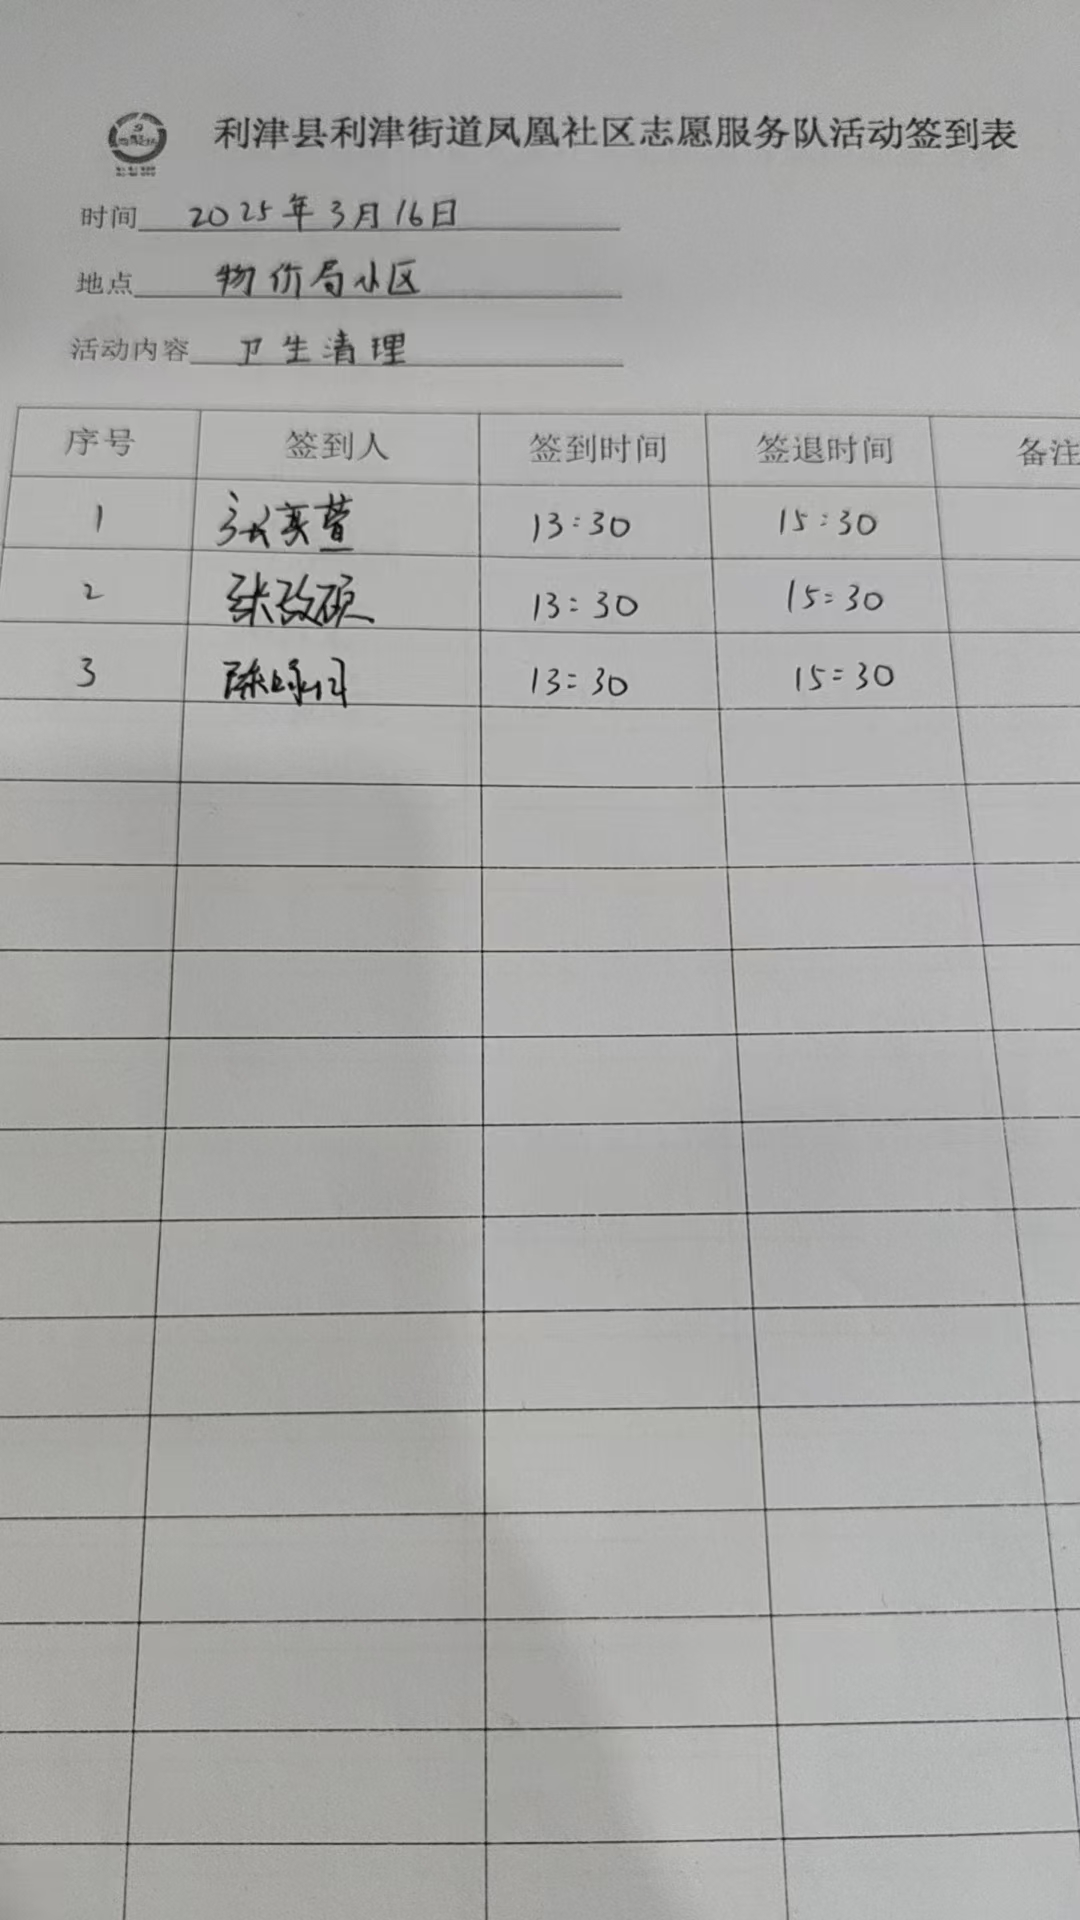 利津县利津街道凤凰社区志愿服务队活动签到表
时间 2025年3月16日
地点 物价局小区
活动内容 卫生清理
序号 签到人 签到时间 签退时间 备注
1 13:30 15:30
2 张政硕 13:30 15:30
3 13:30 15:30